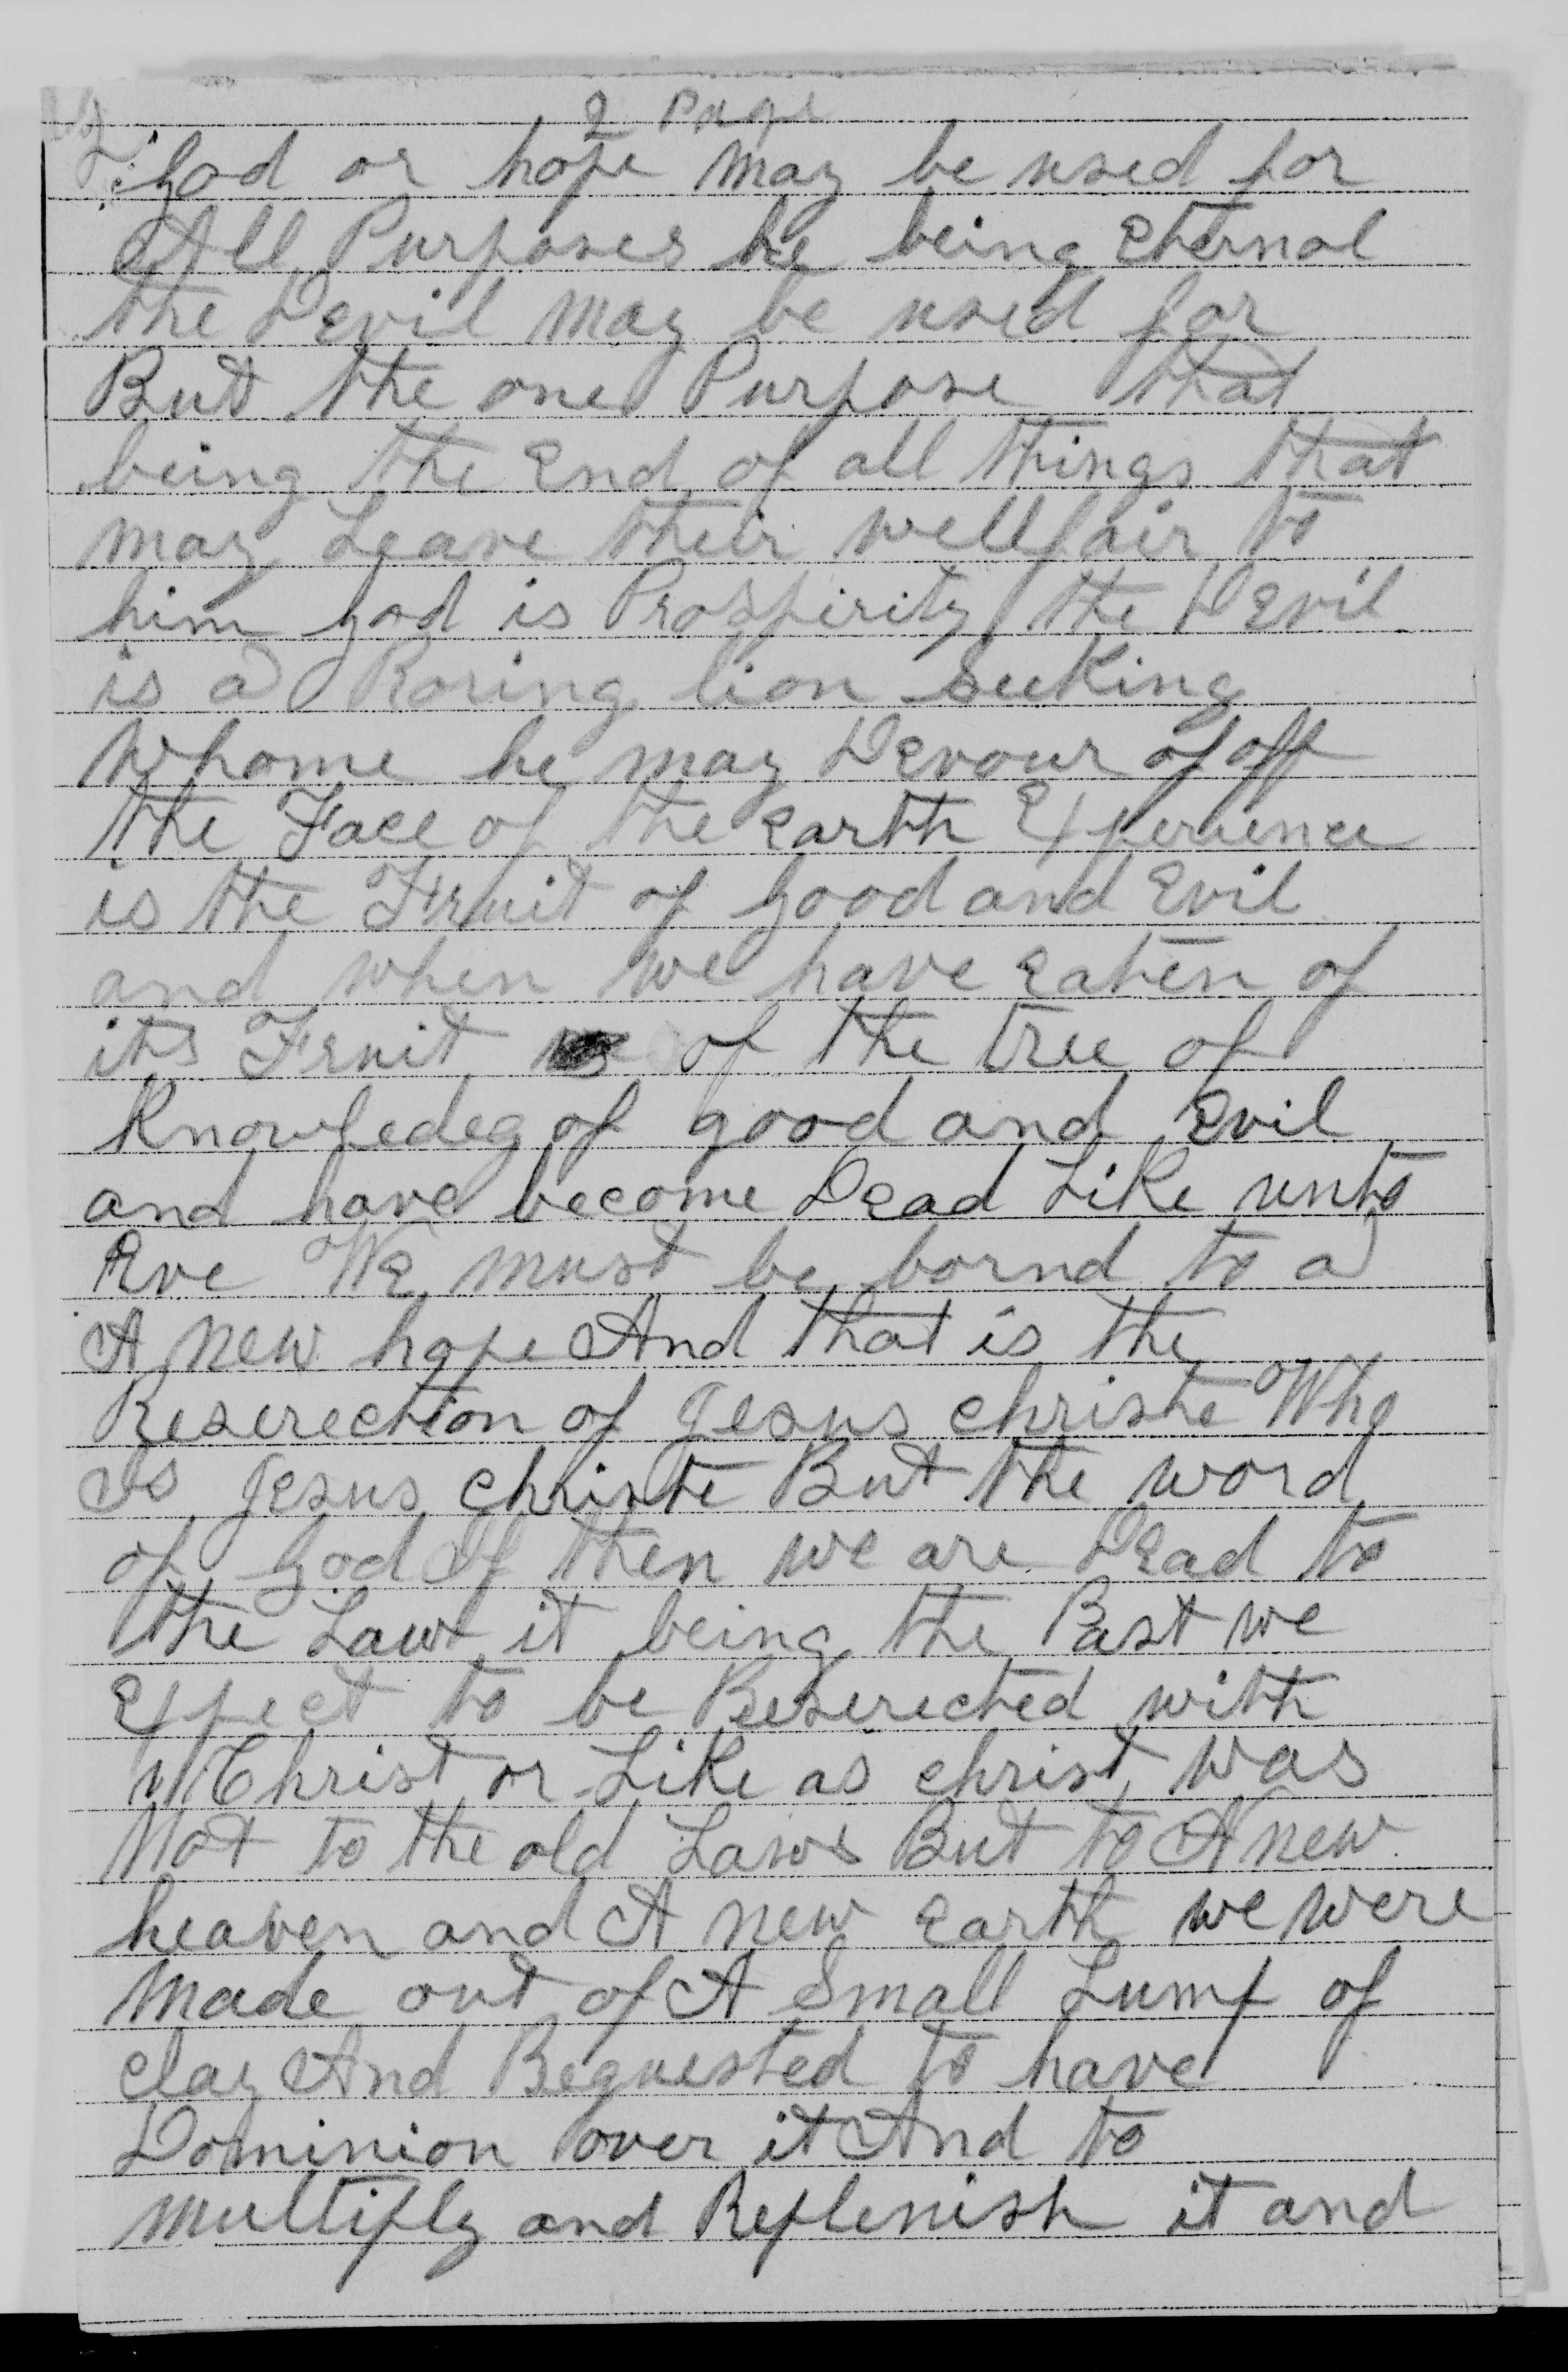 2 Page
God or hope may be used for
All Purposes he being Eternal
the Devil may be used for
But the one Purpose that
being the End of all things that
may Leave their wellfair to
him god is Prospirity the Devil
is a Roring lion Seeking
Whome he may Devour of off
the Face of the Earth Experience
is the Fruit of good and Evil
and when we have Eaten of
its Fruit of the tree of
Knowledeg of good and Evil
and have become Dead Like unto
Eve We must be bornd to a
A new hope And that is the
Reserection of Jesus christe Who
Is Jesus christe But the word
of God If then we are Dead to
the Law it being the Past we
Expect to be Reserected with
Christ or Like as christ was
Not to the old Laws But to A new
heaven and A new Earth we were
made out of A Small Lump of
clay And Requested to have
Dominion over it And to
multiply and Replenish it and